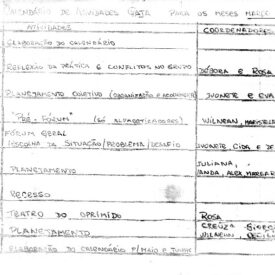 CALENDÁRIO DE ATIVIDADES GAJA PARA OS MESES MARÇO
ATIVIDADES COORDENADORES
ELABORAÇÃO DO CALENDÁRIO
REFLEXÃO DA PRÁTICA E CONFLITOS NO GRUPO DÉBORA E ROSA
PLANEJAMENTO COLETIVO (ORGANIZAÇÃO E IVONETE E EVA
"PRÉ-FORUM" (SÓ ALFABETIZADORES) WILNEAN,
FÓRUM GERAL
ESCOLHA DA SITUAÇÃO/PROBLEMA/DESAFIO IVONETE CIDA E DE
JULIANA,
PLANEJAMENTO VANDA, ALEX,
RECESSO
TEATRO DO OPRIMIDO ROSA
CREUZA
PLANEJAMENTO
ELABORAÇÃO DO CALENDÁRIO P/MAIO E JUNHO